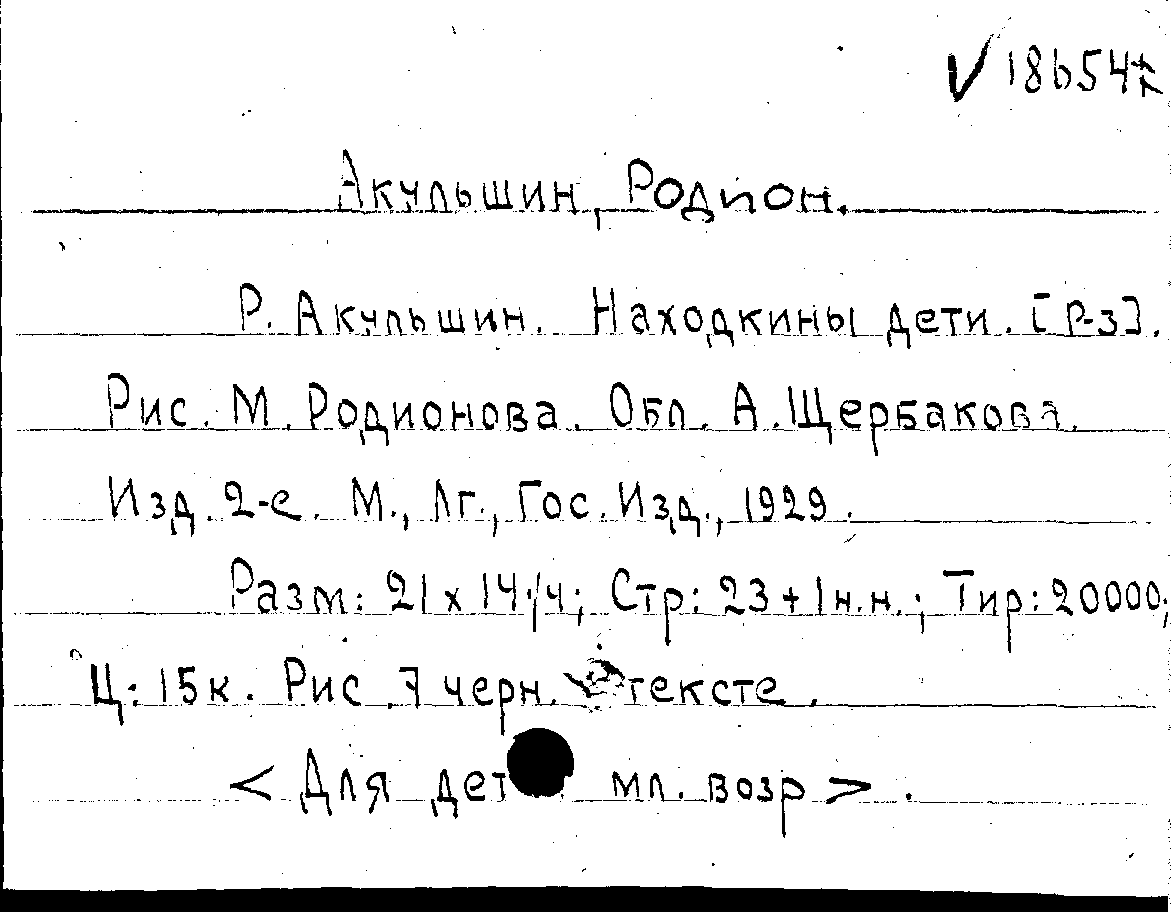 V 18654
Акульшин, Родион.
Р. Акульшин. Находкины дети. [Р-з].
Рис. М. Родионова. Обл. А. Щербакова.
Изд. 2-е. М., Лг., Гос. Изд., 1929.
Разм: 21 x 14¼; Стр: 23 + 1 н.н.; Тир: 20000;
Ц: 15 к. Рис. 7 черн. тексте.
< Для дет мл. возр > .